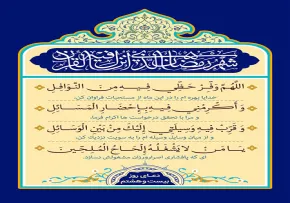 شهر رمضان الذی انزل فیه القرآن
اللهم وفر حظی فیه من النوافل
خدایا بهره ام را در این ماه از مستحبات فراوان کن
و أکرمنی فیه بإحضار المسائل
و مرا با تحقق درخواست ها اکرام فرما
و قرب فیه وسیلتی إلیک من بین الوسائل
و از میان وسایل وسیله ام را به سویت نزدیک کن
یا من لا یشغله إلحاح الملحین
ای که پافشاری اصرارورزان مشغولش نسازد
دعای روز
بیست و هشتم